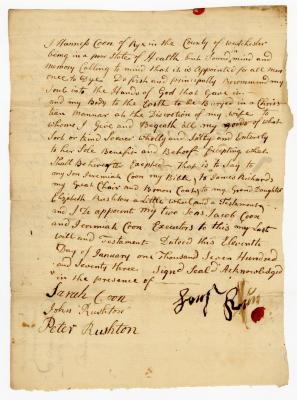 I Harmess Coon of Rye in the County of westchester
being in a poor State of Health but Sound mind and
memory Calling to mind that it is appointed for all men
once to Dye Do first and principally Recommend my
Soul into the Hands of God that Gave it
and my Body to the Earth to be Buryed in a Chris
tian mannar att the Discretion of my wife
whome I Give and Bequeath all my goods of what
Sort or kind Soever wholly and Solely and Entirely
to her Sole Benefit and Behoof Excepting what
Shall Behereafter Excepted That is to Say to
my Son Jeremiah Coon my to James Richards
my Great Chair and to my Grand Daughter
Elizabeth Rushton a little wheel and a Testament
and I to appoint my two Sons Jacob Coon
and Jeremiah Coon Executors to this my Last
will and Testament Dated this Eleventh
Day of January one Thousand Seven Hundred
and Seventy three Signd Seald Acknowledged
in the presence of
Sarah Coon
John Rushton
Peter Rushton